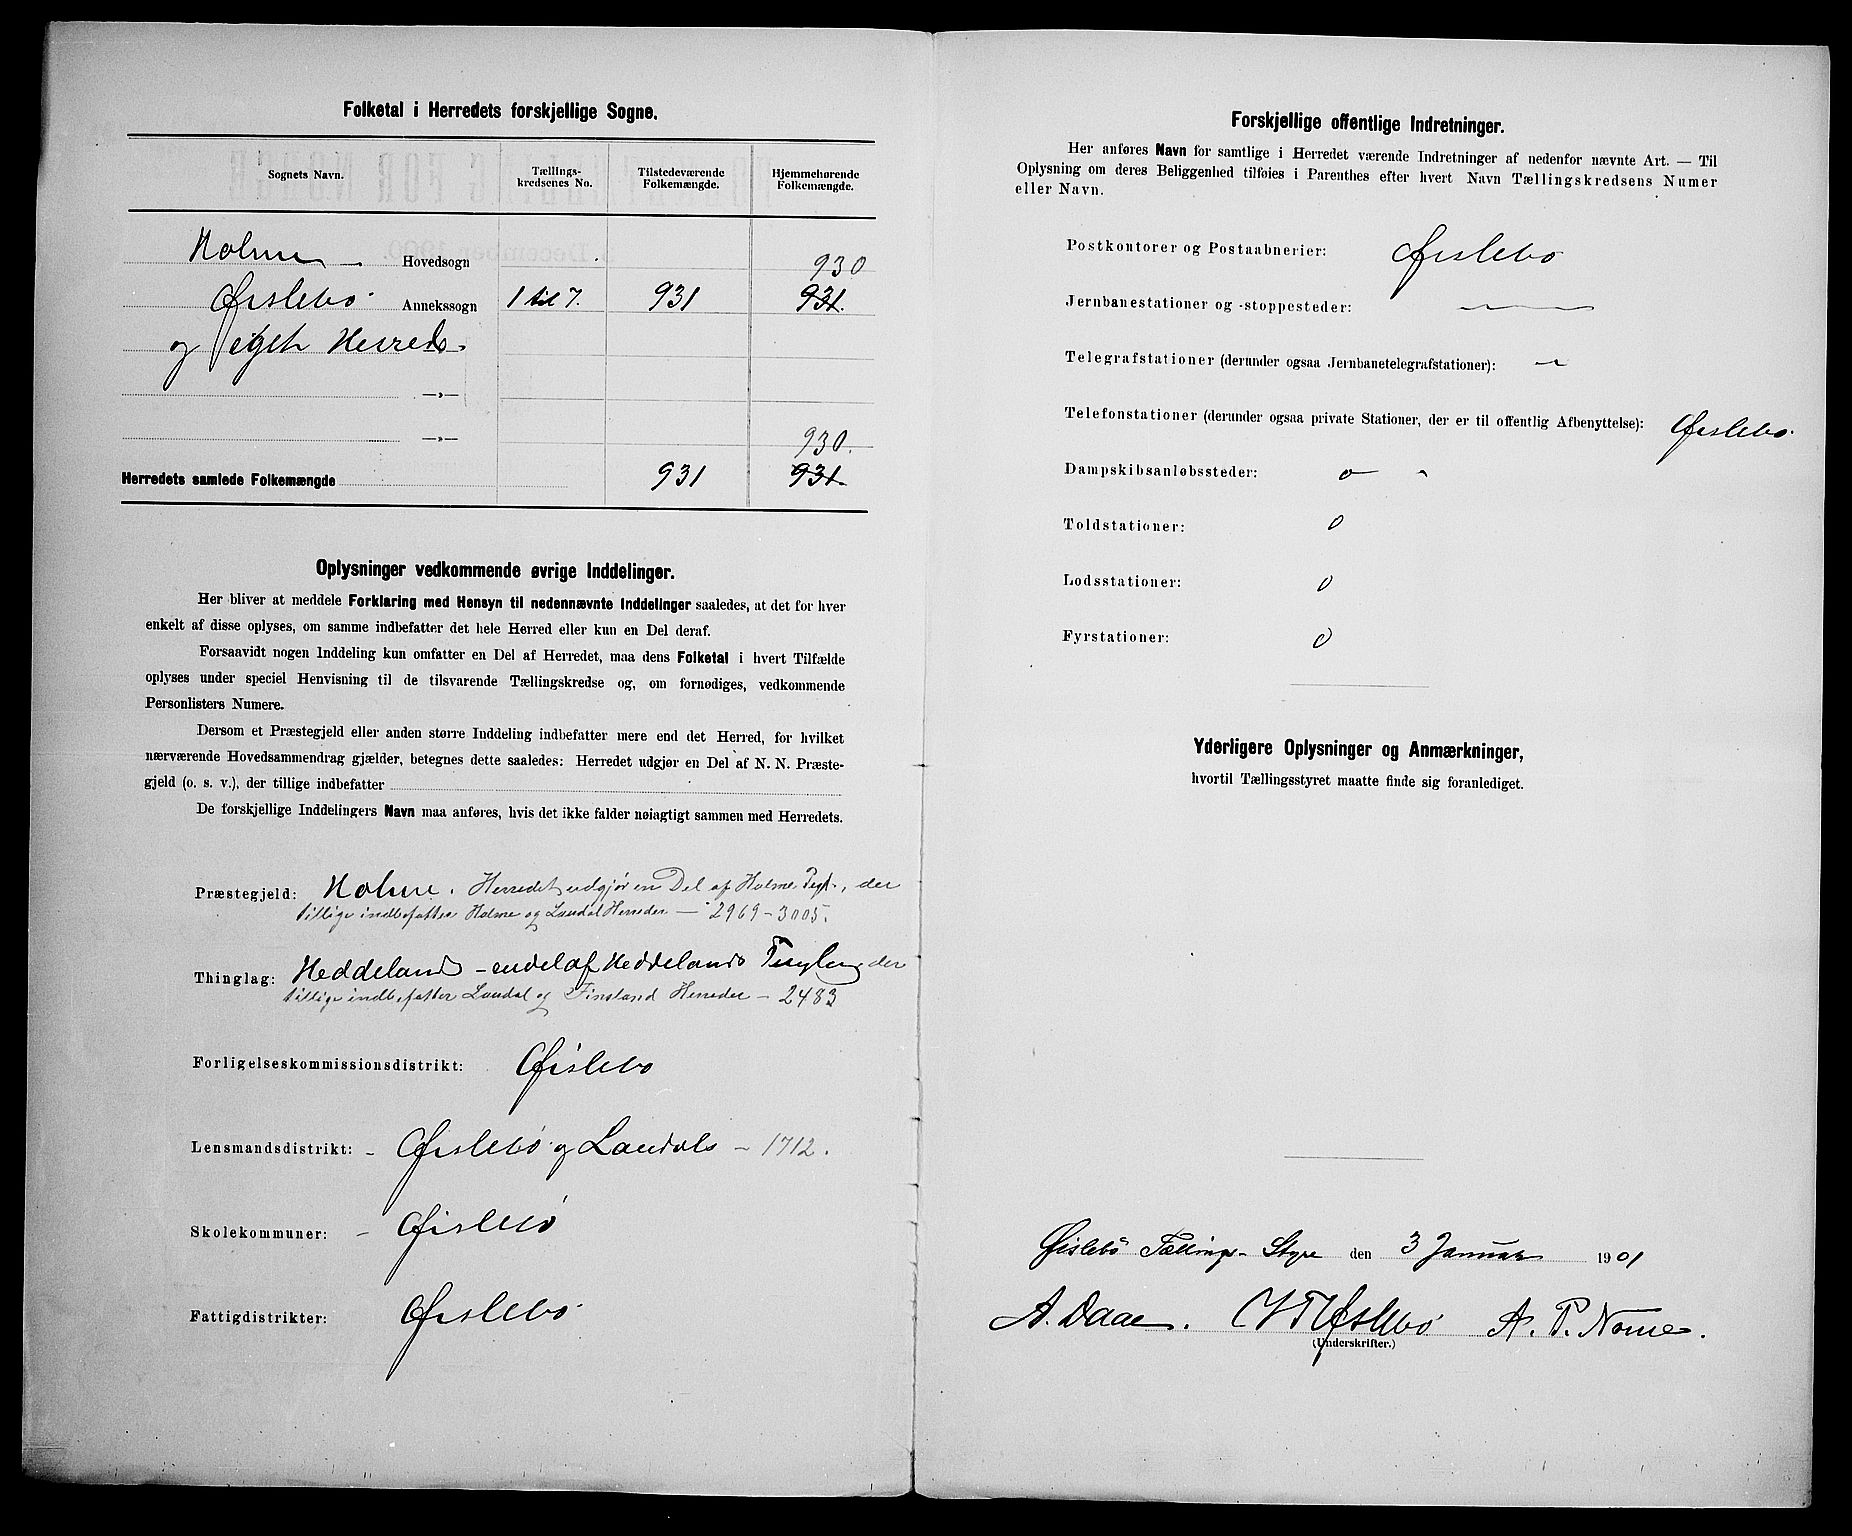 Folketal i Herredets forskjellige Sogne.
Sognets Navn. Tællings-kredsenes No. Tilstedeværende Folkemængde. Hjemmehørende Folkemængde.
Holme — Hovedsogn 930
Øislebø Annekssogn 1 til 7. 931 931.
og eget Herred
—»—
—»— 930.
Herredets samlede Folkemængde 931 931.
Oplysninger vedkommende øvrige Inddelinger.
Her bliver at meddele Forklaring med Hensyn til nedennævnte Inddelinger saaledes, at det for hver
enkelt af disse oplyses, om samme indbefatter det hele Herred eller kun en Del deraf.
Forsaavidt nogen Inddeling kun omfatter en Del af Herredet, maa dens Folketal i hvert Tilfælde
oplyses under speciel Henvisning til de tilsvarende Tællingskredse og, om fornødiges, vedkommende
Personlisters Numere.
Dersom et Præstegjeld eller anden større Inddeling indbefatter mere end det Herred, for hvilket
nærværende Hovedsammendrag gjælder, betegnes dette saaledes: Herredet udgjør en Del af N. N. Præste-
gjeld (o. s. v.), der tillige indbefatter
De forskjellige Inddelingers Navn maa anføres, hvis det ikke falder nøiagtigt sammen med Herredets.
Præstegjeld: Holme. Herredet udgjør en Del af Holme Pgj., der
tillige indbefatter Holme og Laudal Herreder — 2969 - 3005.
Thinglag: Heddeland - en del af Heddelands Tinglag der
tillige indbefatter Laudal og Finsland Herreder — 2483
Forligelseskommissionsdistrikt: Øislebø
Lensmandsdistrikt: - Øislebø og Laudals - 1712.
Skolekommuner: - Øislebø
Fattigdistrikter: Øislebø
Forskjellige offentlige Indretninger.
Her anføres Navn for samtlige i Herredet værende Indretninger af nedenfor nævnte Art. — Til
Oplysning om deres Beliggenhed tilføies i Parenthes efter hvert Navn Tællingskredsens Numer
eller Navn.
Postkontorer og Postaabnerier: Øislebø
Jernbanestationer og -stoppesteder: —
Telegrafstationer (derunder ogsaa Jernbanetelegrafstationer): —
Telefonstationer (derunder ogsaa private Stationer, der er til offentlig Afbenyttelse): Øislebø.
Dampskibsanløbssteder: 0
Toldstationer: 0
Lodsstationer: 0
Fyrstationer: 0
Yderligere Oplysninger og Anmærkninger,
hvortil Tællingsstyret maatte finde sig foranlediget.
Øislebø Tællings- Styre den 3 Januar 1901
A. Daae. Øislebø A. P. Nome.
(Underskrifter.)